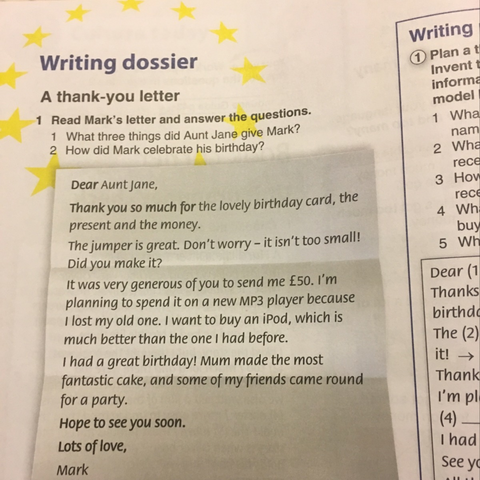 Writing dossier
A thank-you letter
1 Read Mark's letter and answer the questions.
1 What three things did Aunt Jane give Mark?
2 How did Mark celebrate his birthday?
Dear Aunt Jane,
Thank you so much for the lovely birthday card, the
present and the money.
The jumper is great. Don't worry – it isn't too small!
Did you make it?
It was very generous of you to send me £50. I'm
planning to spend it on a new MP3 player because
I lost my old one. I want to buy an iPod, which is
much better than the one I had before.
I had a great birthday! Mum made the most
fantastic cake, and some of my friends came round
for a party.
Hope to see you soon.
Lots of love,
Mark
Writing
1 Plan a
Invent
informa
model
1 Wha
nam
2 Wha
rece
3 How
rece
4 Wh
buy
5 Wh
Dear (1
Thanks
birthd
The (2)
it! →
Thank
I'm pl
(4)
I had
See yo